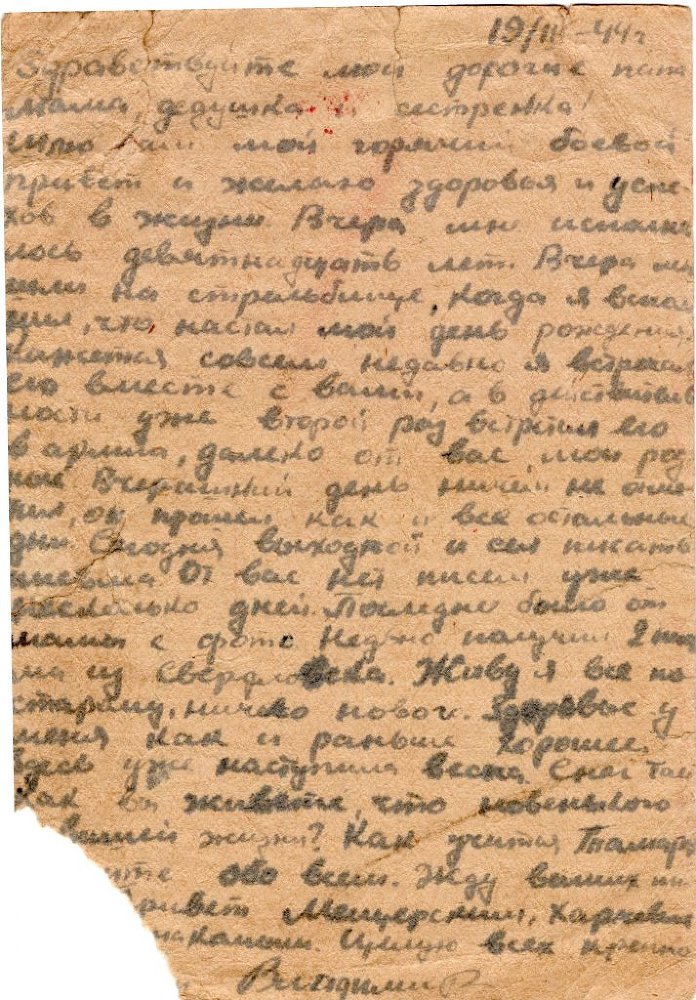 19/III-44г
Здравствуйте мои дорогие папа
мама, дедушка и сестренка!
Шлю вам мой горячий боевой
привет и желаю здоровья и успе-
хов в жизни. Вчера мне исполни
лось девятнадцать лет. Вчера мы
шли на стрельбище, когда я вспом
нил, что настал мой день рождения
Кажется совсем недавно я встречал
его вместе с вами, а в действитель
ности уже второй раз встретил его
в армии, далеко от вас мои род
ные. Вчерашний день ничем не отме
тил, он прошел как и все остальные
дни. Сегодня выходной и сел писать
письма. От вас нет писем уже
несколько дней. Последнее было от
мамы с фото. Недавно получил 2 пись
ма из Свердловска. Живу я все по
старому, ничего нового. Здоровье у
меня как и раньше хорошее.
Здесь уже наступила весна. Снег тает
Как вы живете, что новенького
вашей жизни? Как учится Тамара
ите обо всем. Жду ваших пи
привет Мещерским, Харчевн
накомым. Целую всех крепко
Владимир